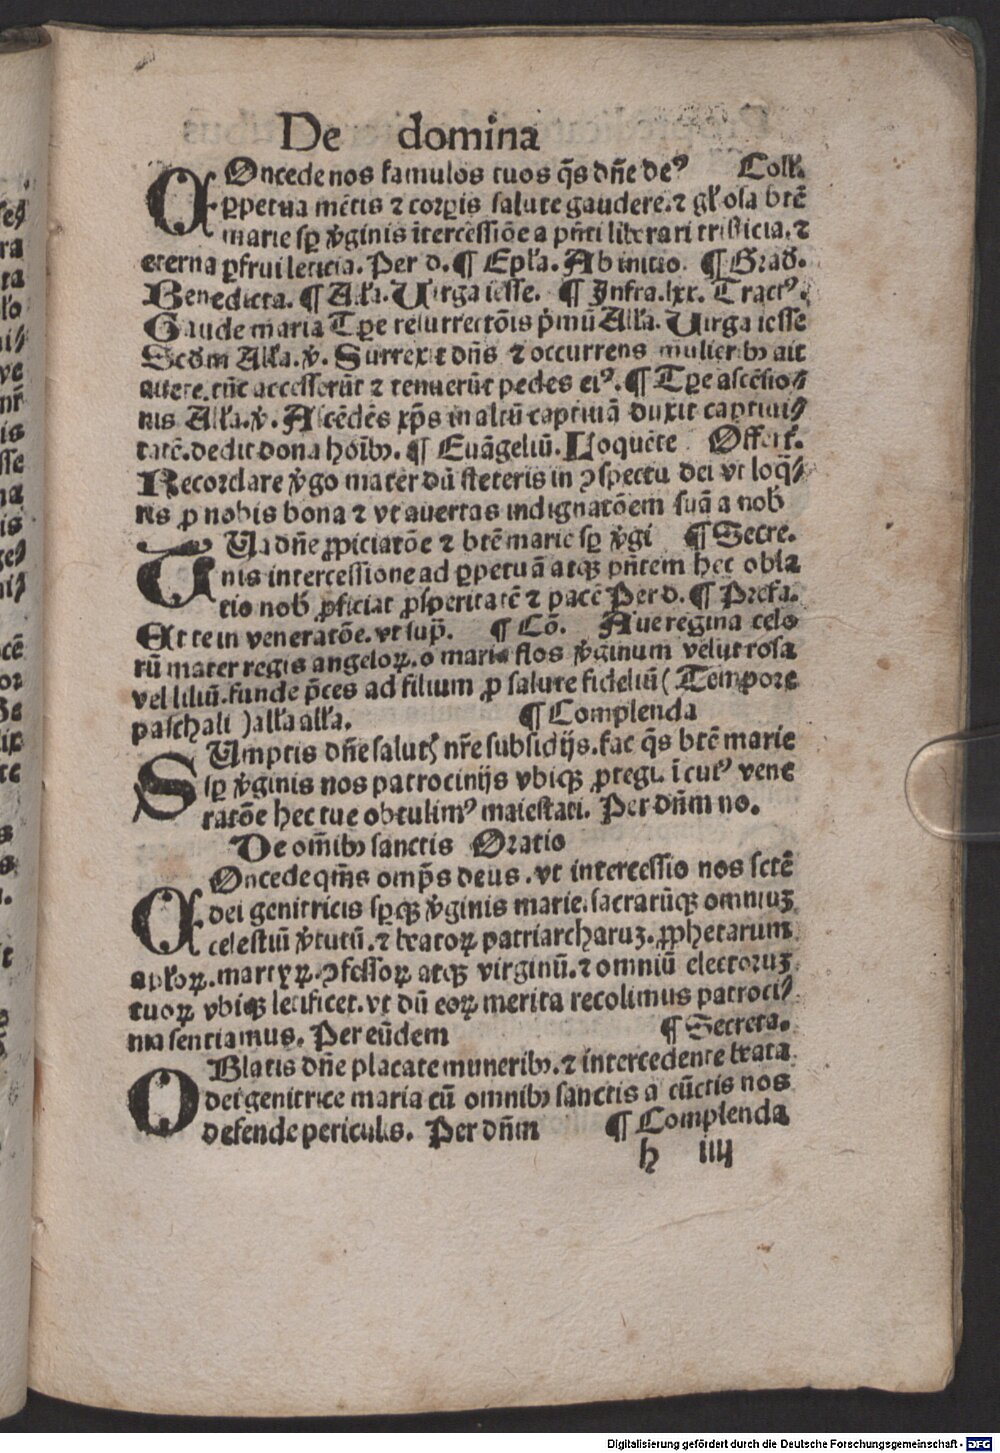 De domina
COncede nos famulos tuos q̄s dn̄e de⁹ Coll̄.
ꝑpetua mētis ⁊ corꝑis salute gaudere. ⁊ gl̓osa btē
marie sꝑ v̓ginis ītercessiōe a pn̄ti liberari tristicia. ⁊
eterna ꝑfrui leticia. Per d. ¶ Epl̓a. Ab initio. ¶ Grad̓.
Benedicta. ¶ All̓a. Uirga iesse. ¶ Infra .lxx. Tract⁹.
Gaude maria Tꝑe resurrectōis p̓mū All̓a. Uirga iesse
Scd̓m All̓a. v̓. Surrexit dn̄s ⁊ occurrens mulierib⁹ ait
auete. tūc accesserūt ⁊ tenuerūt pedes ei⁹. ¶ Tꝑe ascēsio⸗
nis All̓a. v̓. Ascēdēs xp̄s in altū captiuā duxit captiui⸗
tatē. dedit dona hoīb⁹. ¶ Euāgeliū. Loquēte Offert̓.
Recordare v̓go mater dū steteris in ꝯspectu dei vt loq̄⸗
ris ꝓ nobis bona ⁊ vt auertas indignatōem suā a nob̓
TUa dn̄e ꝓpiciatōe ⁊ btē marie sꝑ v̓gi ¶ Secre.
nis intercessione ad ꝑpetuā atqꝫ pn̄tem hec obla
tio nob̓ ꝓficiat ꝓsperitatē ⁊ pacē Per d. ¶ Prefa.
Et te in veneratōe. vt sup̄. ¶ Cō. Aue regina celo
rū mater regis angeloꝝ. o maria flos v̓ginum velut rosa
vel liliū. funde p̄ces ad filium ꝓ salute fideliū ( Tempore
paschali ) all̓a all̓a. ¶ Complenda
SUmptis dn̄e salutꝭ nr̄e subsidijs. fac q̄s btē marie
sꝑ v̓ginis nos patrocinijs vbiqꝫ ꝓtegi. ī cui⁹ vene
ratōe hec tue obtulim⁹ maiestati. Per dn̄m no.
De om̄ib⁹ sanctis Oratio
COncede qm̄s omp̄s deus. vt intercessio nos sctē
dei genitricis sꝑqꝫ v̓ginis marie. sacrarūqꝫ omniuꝫ
celestiū v̓tutū. ⁊ beatoꝝ patriarcharuꝫ. ꝓphetarum
apl̓oꝝ. martyꝝ. ꝯfessoꝝ atqꝫ virginū. ⁊ omniū electoruꝫ
tuoꝝ vbiqꝫ letificet. vt dū eoꝝ merita recolimus patroci⸗
nia sentiamus. Per eūdem ¶ Secreta.
OBlatis dn̄e placate munerib⁹. ⁊ intercedente beata
dei genitrice maria cū omnib⁹ sanctis a cūctis nos
defende periculis. Per dn̄m ¶ Complenda
h iiij
Digitalisierung gefördert durch die Deutsche Forschungsgemeinschaft - DFG